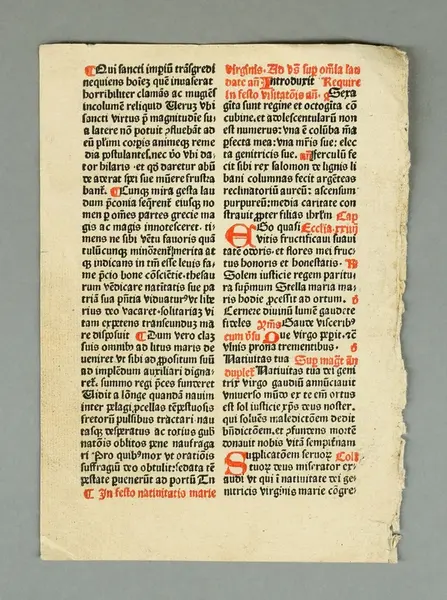 Qui sancti impiū trāsgredi
nequiens hoīez quē invaserat
horribiliter clamās ac mugiēs
incolumē reliquid Ueruz vbi
sancti virtus p̄ magnitudīe su-
a latere nō potuit
eū plīmi corpis animeqz reme
dia postulantes, nec vō vbi da-
tor bilaris
bant. Cunqz mira gesta lau
dum
men p omēs partes grecie ma
gis ac magis innotesceret. ti
mens ne sibi vētu fauoris quā
tulūcunqz
qz iudicans in tm̄ esse leuis fa-
me p̄cio bone cōsciētie thesau
rum vēdicare natītatis sue pa
triā sua
rius deo vacaret solitariaz vi
tam expetens transcunduz ma
re disposuit Dum vero claz
suis omnib ad litus maris de
ueniret vt sibi ad p̄positum suū
ad implendum auxiliari digna
ret. summo regi p̄ces funderet
Uidit a lōnge quandā nauim
inter pelagi pcellas tēpestuosis
fretorū pulsibus tractari nau
tasqz desperatus ac totius gub
natōis oblitos pene naufraga
ri Pro quibz mox vt oratiōis
suffragiū deo obtulit: sedata tē
pestate puenerūt ad portū Tu
In festo natiuitatis marie
virginis. Ad vs sup om̄ia lau
date añ Introduxit Require
in festo visitatōis añ.
gīta sunt regine et octogīta cō
cubine, et adolescentularū non
est numerus: vna ē colūba m̄a
pfecta mea: vna mr̄is sue: elec
ta genitricis sue. añ Ferculū fe
cit sibi rex salomon de lignis li
bani columnas fecit argēteas
reclinatoriū aureū: ascensum
purpureū: media caritate con
strauit ppter filias ihrlm Cap
EGo quasi Ecclīa. xxiiij
vitis fructificaui suaui
tate odoris: et flores mei fruc
tus honoris et honestatis. R
Solem iusticie regem paritu
ra supmum Stella maria ma
ris hodie pcessit ad ortum.
Cernere diuinū lumē gaudete
fideles Gaude visceribz
Que virgo
vīnis prona trementibus.
Natiuitas tua Sup magt añ
duplex Natiuitas tua dei geni
trix virgo gaudiū annūciauit
vniuerso mūdo ex te em̄ ortus
est sol iusticie xp̄s deus noster.
qui soluēs maledictōem dedit
bn̄dictōem, et pfundens mortē
donauit nobis vitā sempitnam
Supplicatōem seruor Coll
tuoz deus miserator ex-
audi vt qui i natiuitate dei ge-
nitricis virginis marie cōgre-